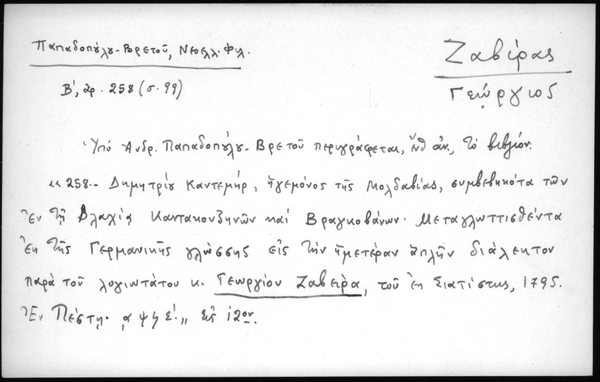 Παπαδοπούλου-Βρετοῦ, Νεοελλ. Φιλ.
Ζαβίρας
Γεώργιος
Β', ἀρ. 258 (σ. 99)
Ὑπὸ Ἀνδρ. Παπαδοπούλου-Βρετοῦ περιγράφεται, ἔνθ' ἀν., τὸ βιβλίον:
«258.- Δημητρίου Καντεμήρ, ἡγεμόνος τῆς Μολδαβίας, συμβεβηκότα τῶν
ἐν τῇ Βλαχίᾳ Καντακουζηνῶν καὶ Βραγκοβάνων. Μεταγλωττισθέντα
ἐκ τῆς Γερμανικῆς γλώσσης εἰς τὴν ἡμετέραν ἁπλῆν διάλεκτον
παρὰ τοῦ λογιωτάτου κ. Γεωργίου Ζαβείρα, τοῦ ἐκ Σιατίστης, 1795.
Ἐν Πέστῃ. ͵αψϟε΄.„ εἰς 12ον.